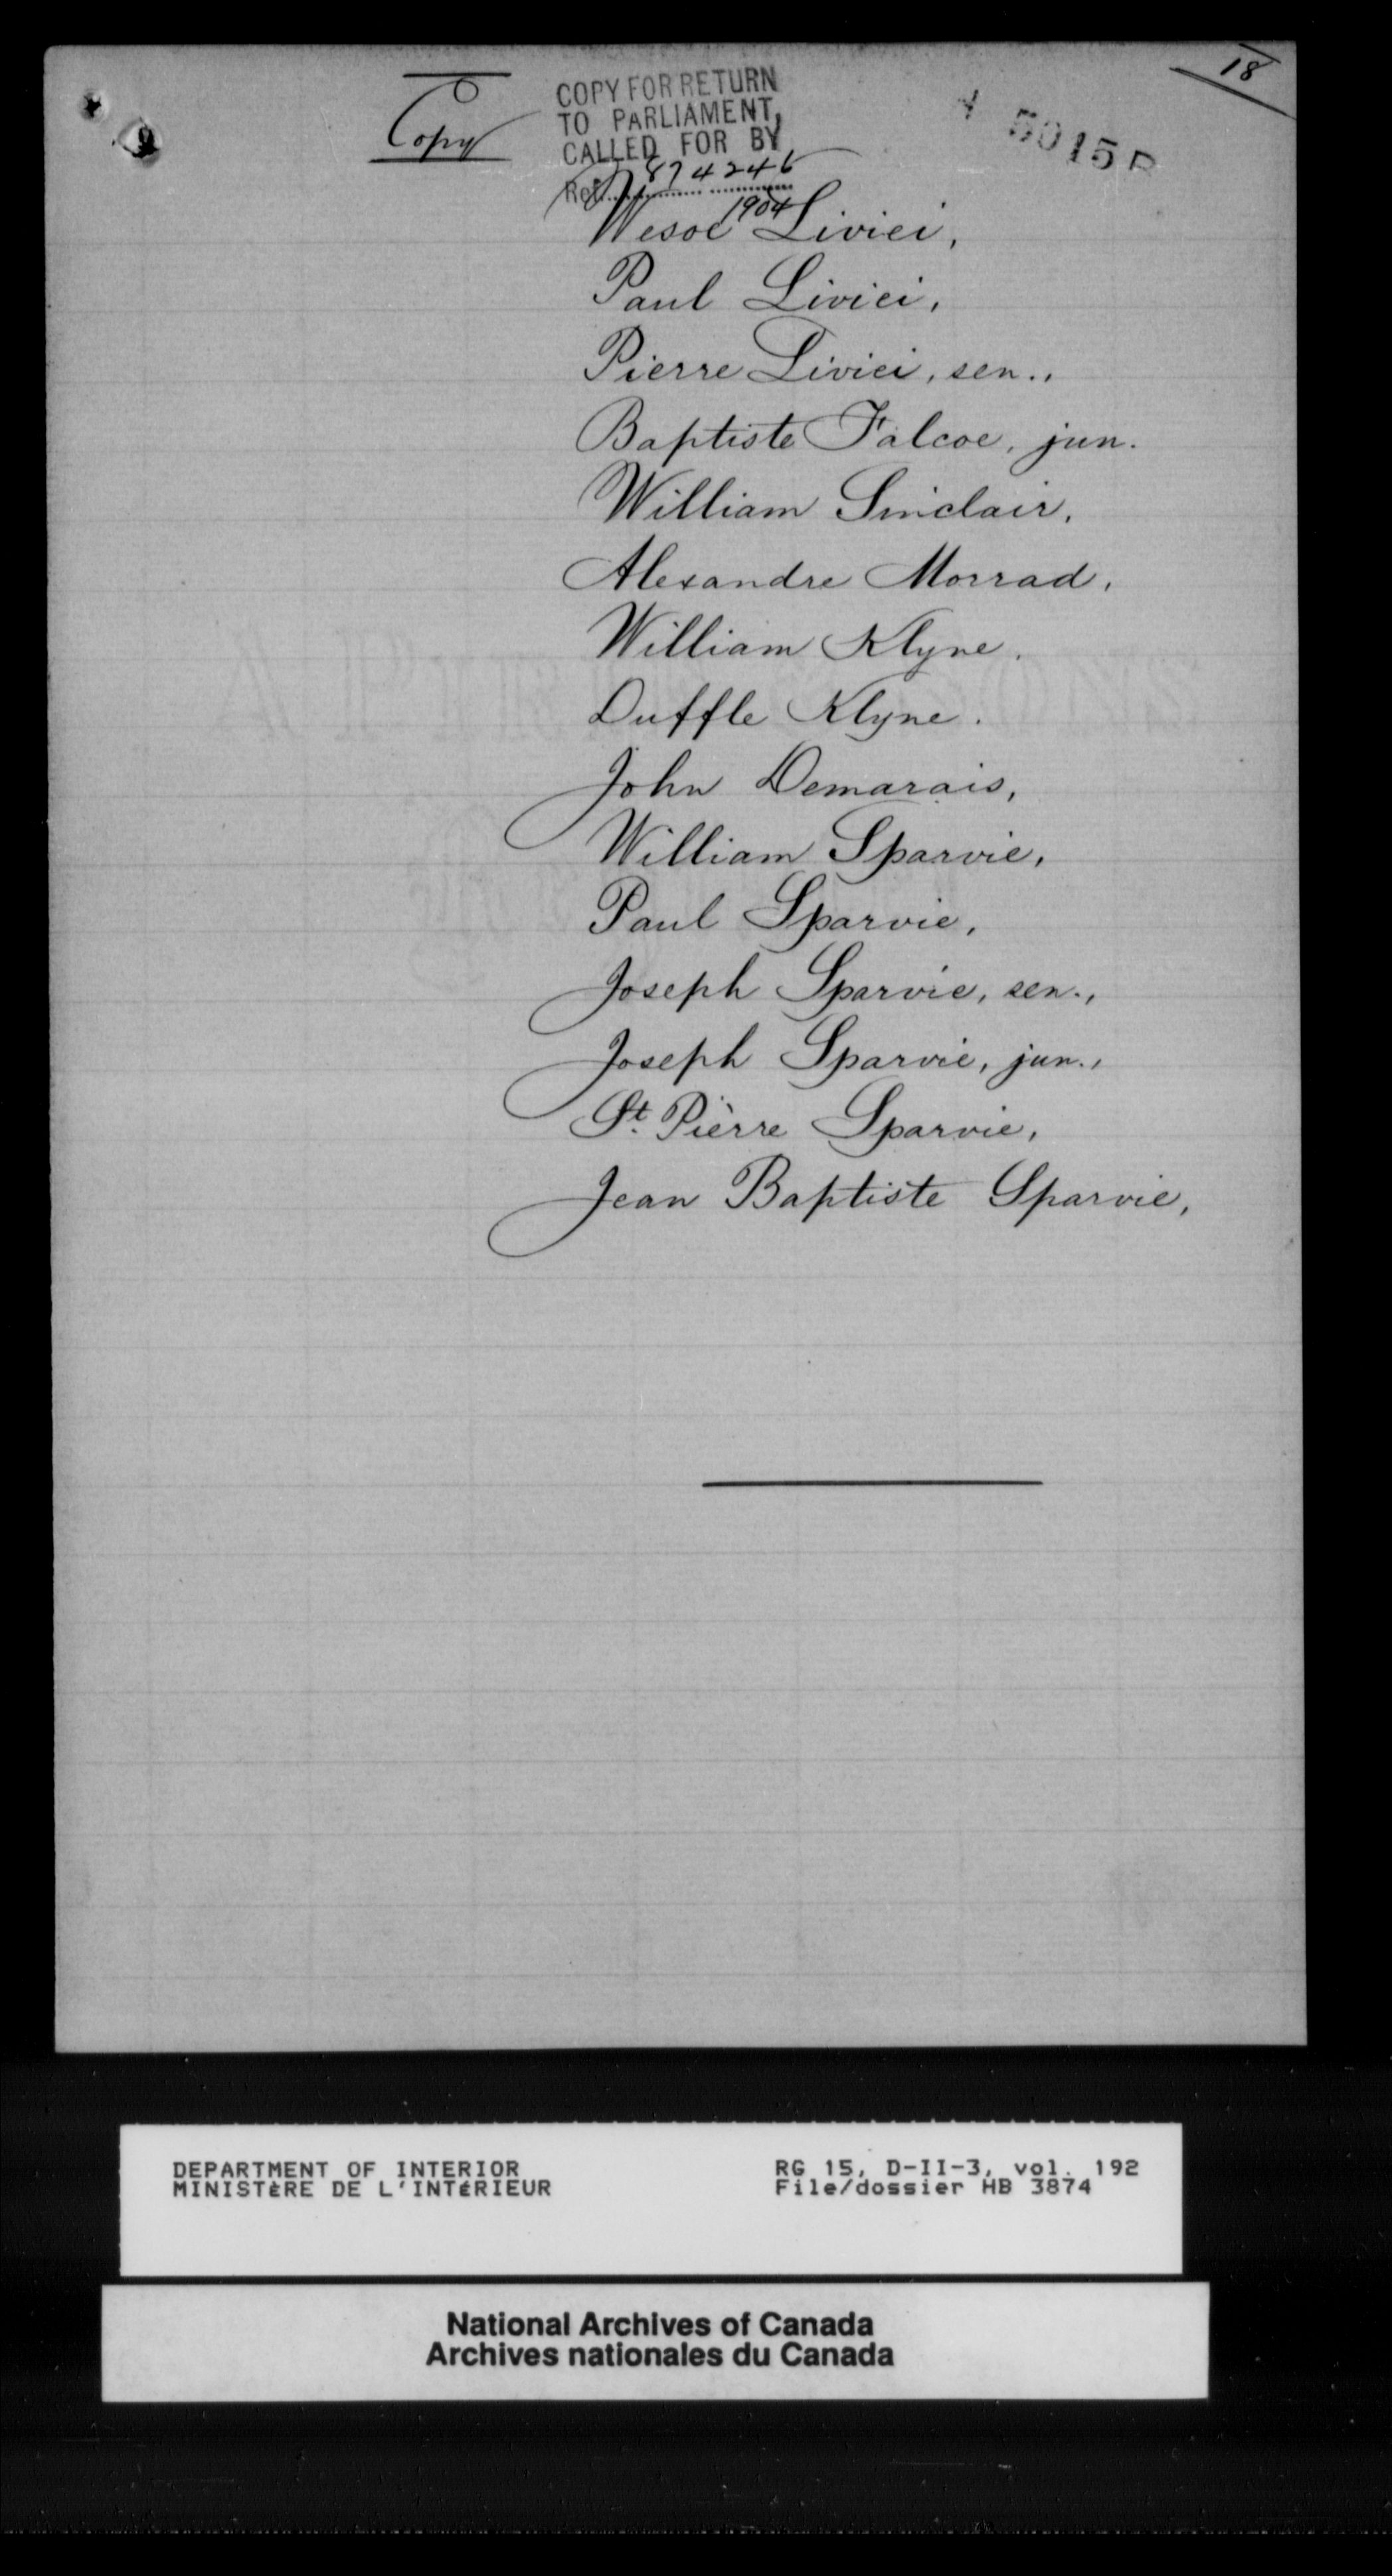 18
Copy
COPY FOR RETURN
TO PARLIAMENT,
CALLED FOR BY
Ref. 874246
1904
5015
Wesoe Liviei,
Paul Liviei,
Pierre Liviei, sen.,
Baptiste Falcoe, jun.
William Sinclair,
Alexandre Morrad,
William Klyne.
Duffle Klyne.
John Demarais,
William Sparvie,
Paul Sparvie,
Joseph Sparvie, sen.,
Joseph Sparvie, jun.,
St. Pierre Sparvie,
Jean Baptiste Sparvie,
DEPARTMENT OF INTERIOR
MINISTÈRE DE L'INTÉRIEUR
RG 15, D-II-3, vol. 192
File/dossier HB 3874
National Archives of Canada
Archives nationales du Canada